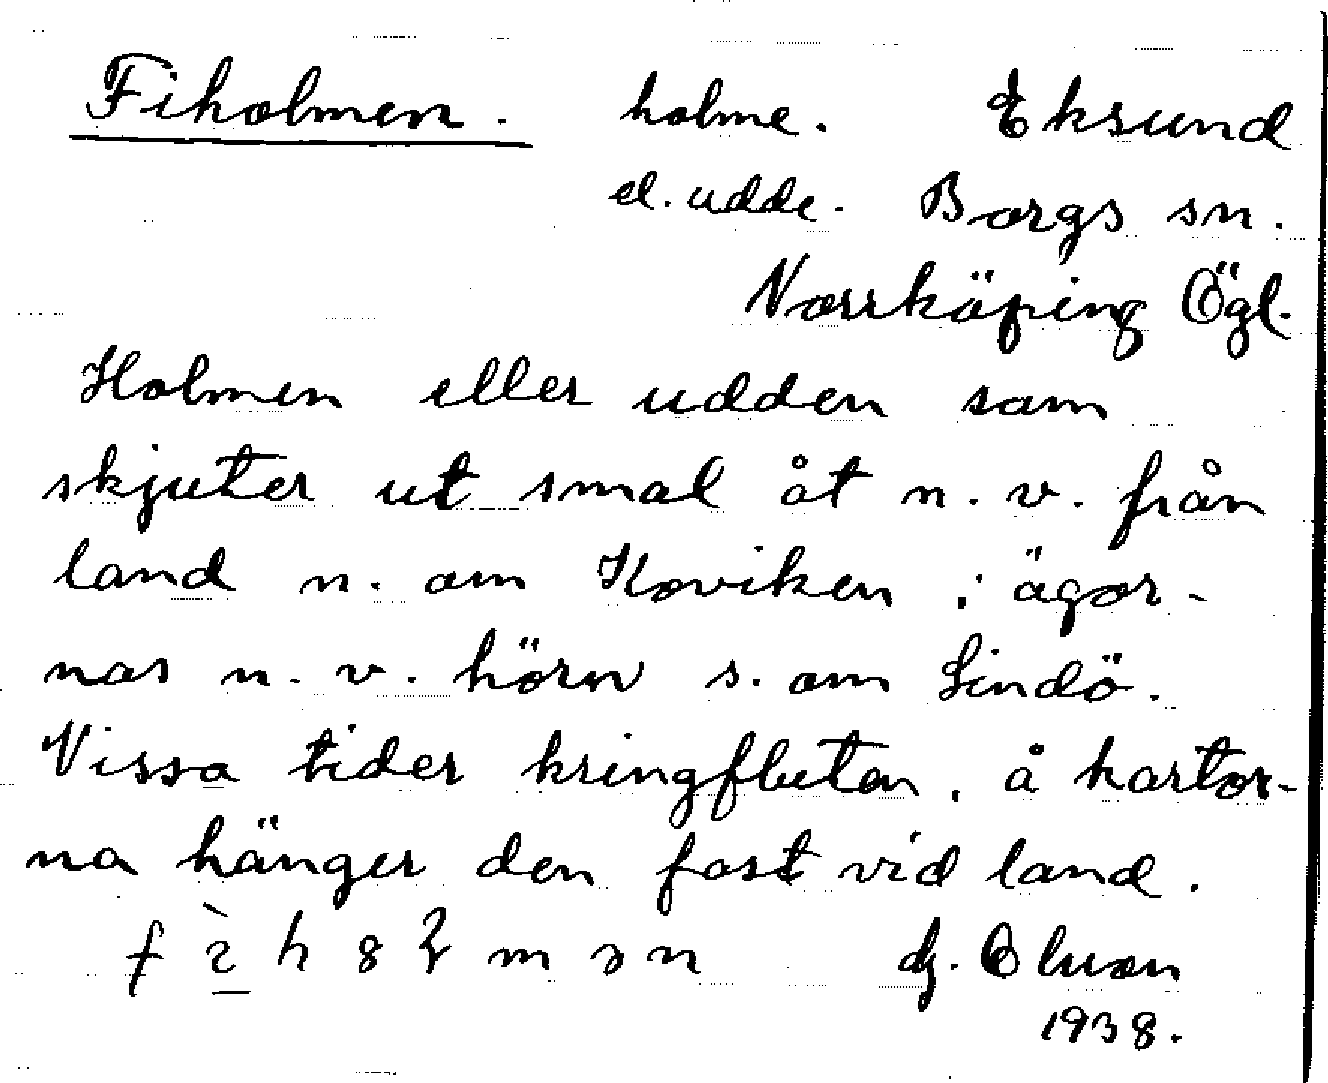 Fiholmen. holme. Eksund
el. udde. Borgs sn.
Norrköping Ögl.
Holmen eller udden som
skjuter ut smal åt n. v. från
land n. om Koviken i ägor-
nas n. v. hörn s. om Lindö.
Vissa tider kringfluten, å kartor-
na hänger den fast vid land.
1938.